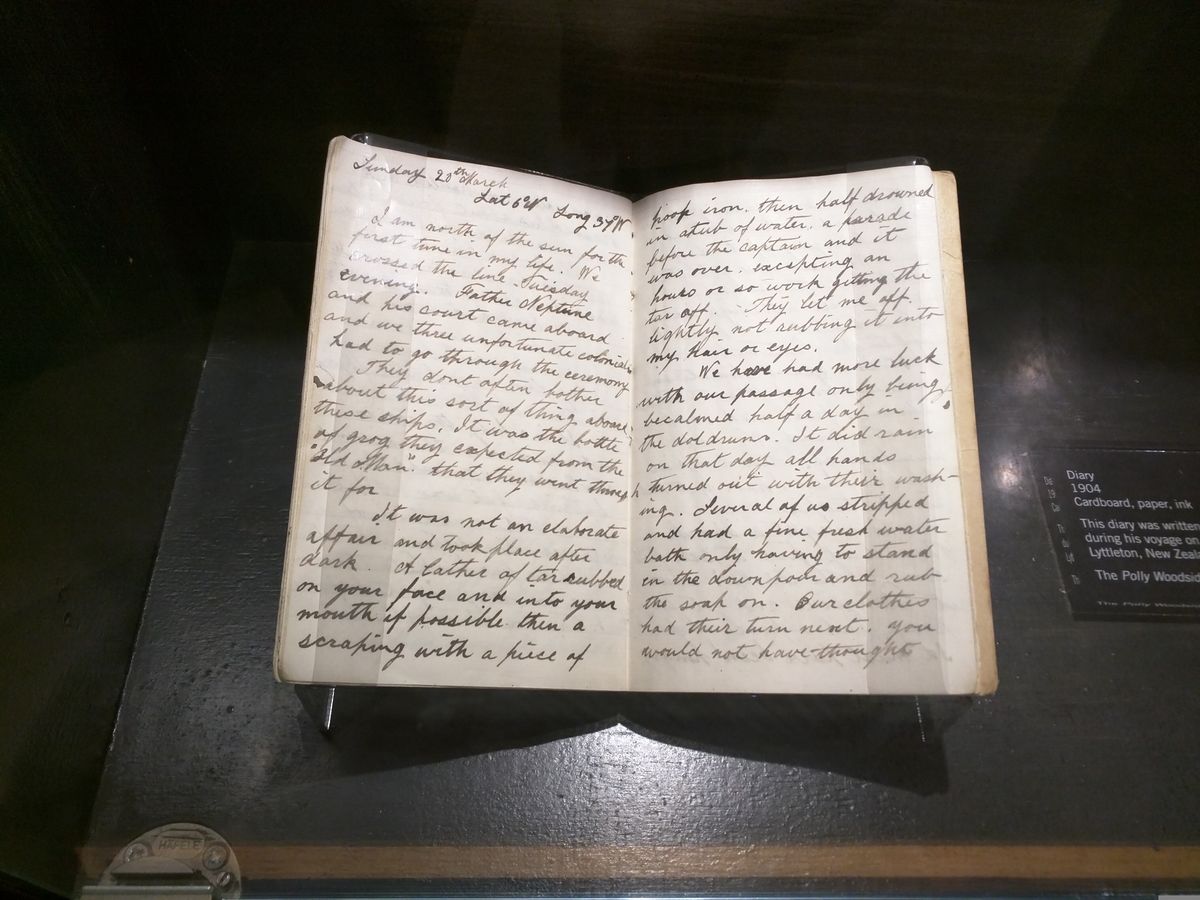 Sunday 20th March
Lat 6°N Long 37°W
I am north of the sun for the
first time in my life. We
crossed the line Tuesday
evening. Father Neptune
and his court came aboard
and we three unfortunate colonials
had to go through the ceremony
They dont often bother
about this sort of thing aboard
these ships. It was the bottle
of grog they expected from the
"Old Man" that they went through
it for
It was not an elaborate
affair and took place after
dark. A lather of tar rubbed
on your face and into your
mouth if possible then a
scraping with a piece of
hoop iron. then half drowned
in a tub of water. a parade
before the captain and it
was over. excepting an
hours or so work getting the
tar off. They let me off
lightly not rubbing it into
my hair or eyes.
We have had more luck
with our passage only being
becalmed half a day in
the doldrums. It did rain
on that day all hands
turned out with their wash-
ing. Several of us stripped
and had a fine fresh water
bath only having to stand
in the downpour and rub
the soap on. Our clothes
had their turn next. you
would not have thought
Diary
1904
Cardboard, paper, ink
This diary was written
during his voyage on
Lyttleton, New Zeal
The Polly Woodsid
HÄFELE